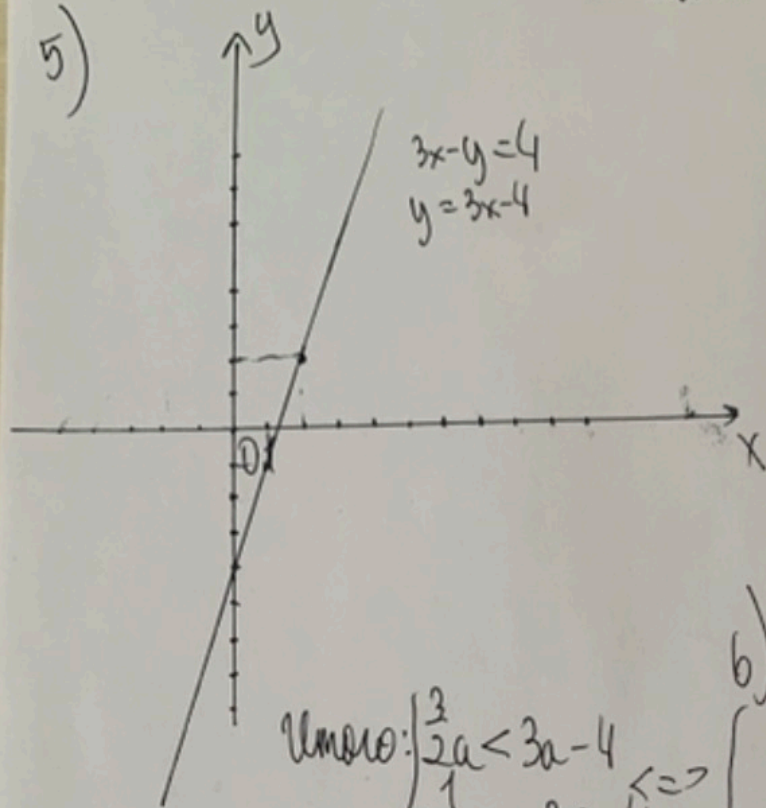 5)
y
3x-y=4
y=3x-4
0
x
6)
Итого:
3/2a<3a-4
<=>